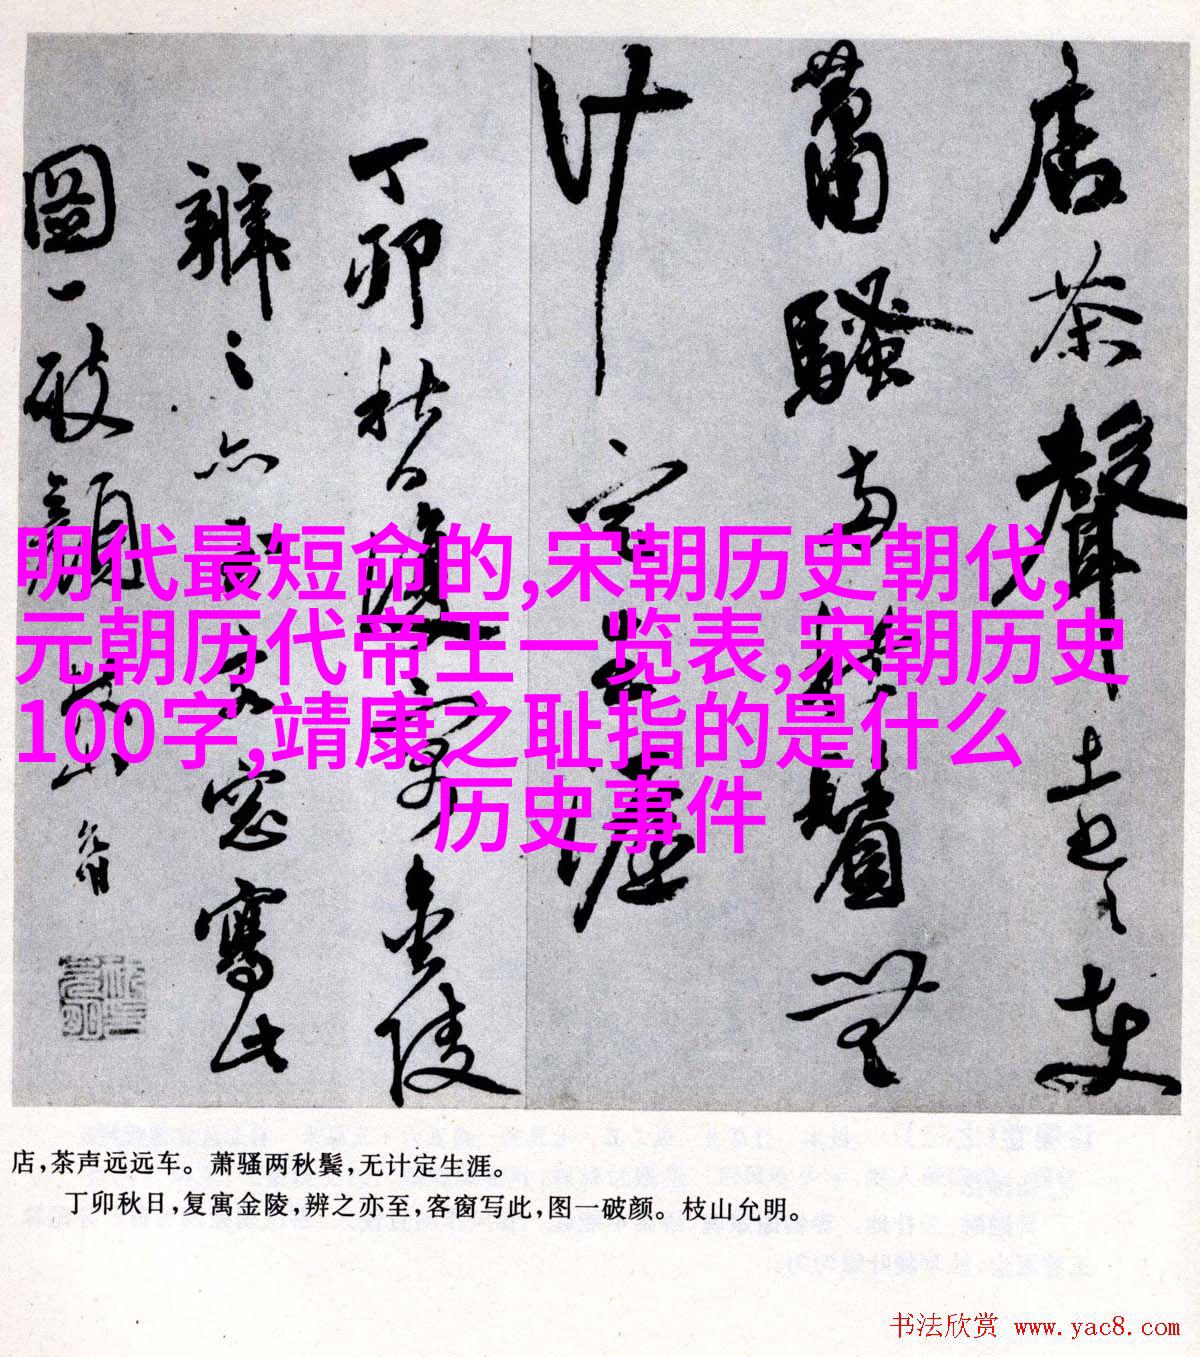 店茶聲遠遠車
蕭騷兩秋鬢無
計定生涯
丁卯秋日復寓金陵
辨之亦至客窓寫此
圖一破顏枝山允明
明代最短命的,宋朝历史朝代,
元朝历代帝王一览表,宋朝历史
100字,靖康之耻指的是什么
历史事件
店,茶声远远车。萧骚两秋鬓,无计定生涯。
丁卯秋日,复寓金陵,辨之亦至,客窗写此,图一破颜。枝山允明。
书法欣赏 www.yac8.com